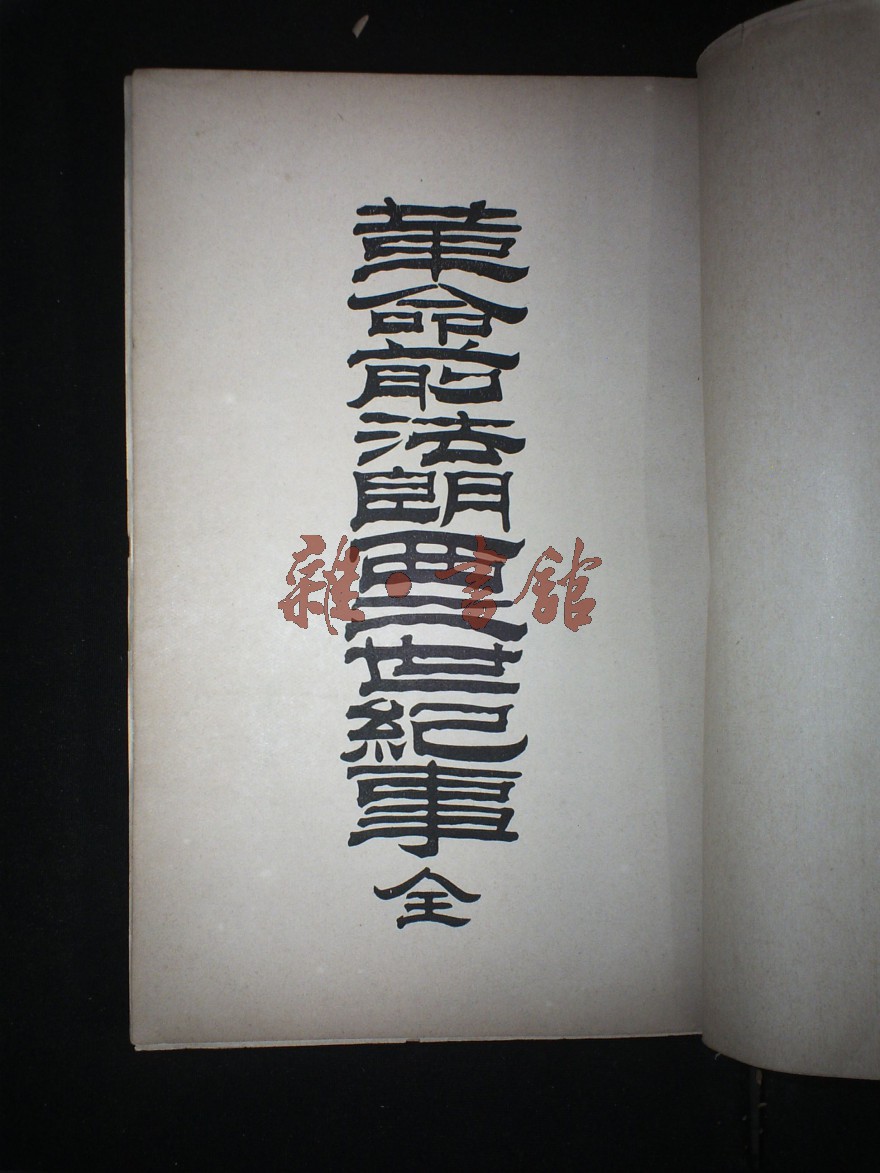 革命前法朗西二世紀事 全
雜·書館